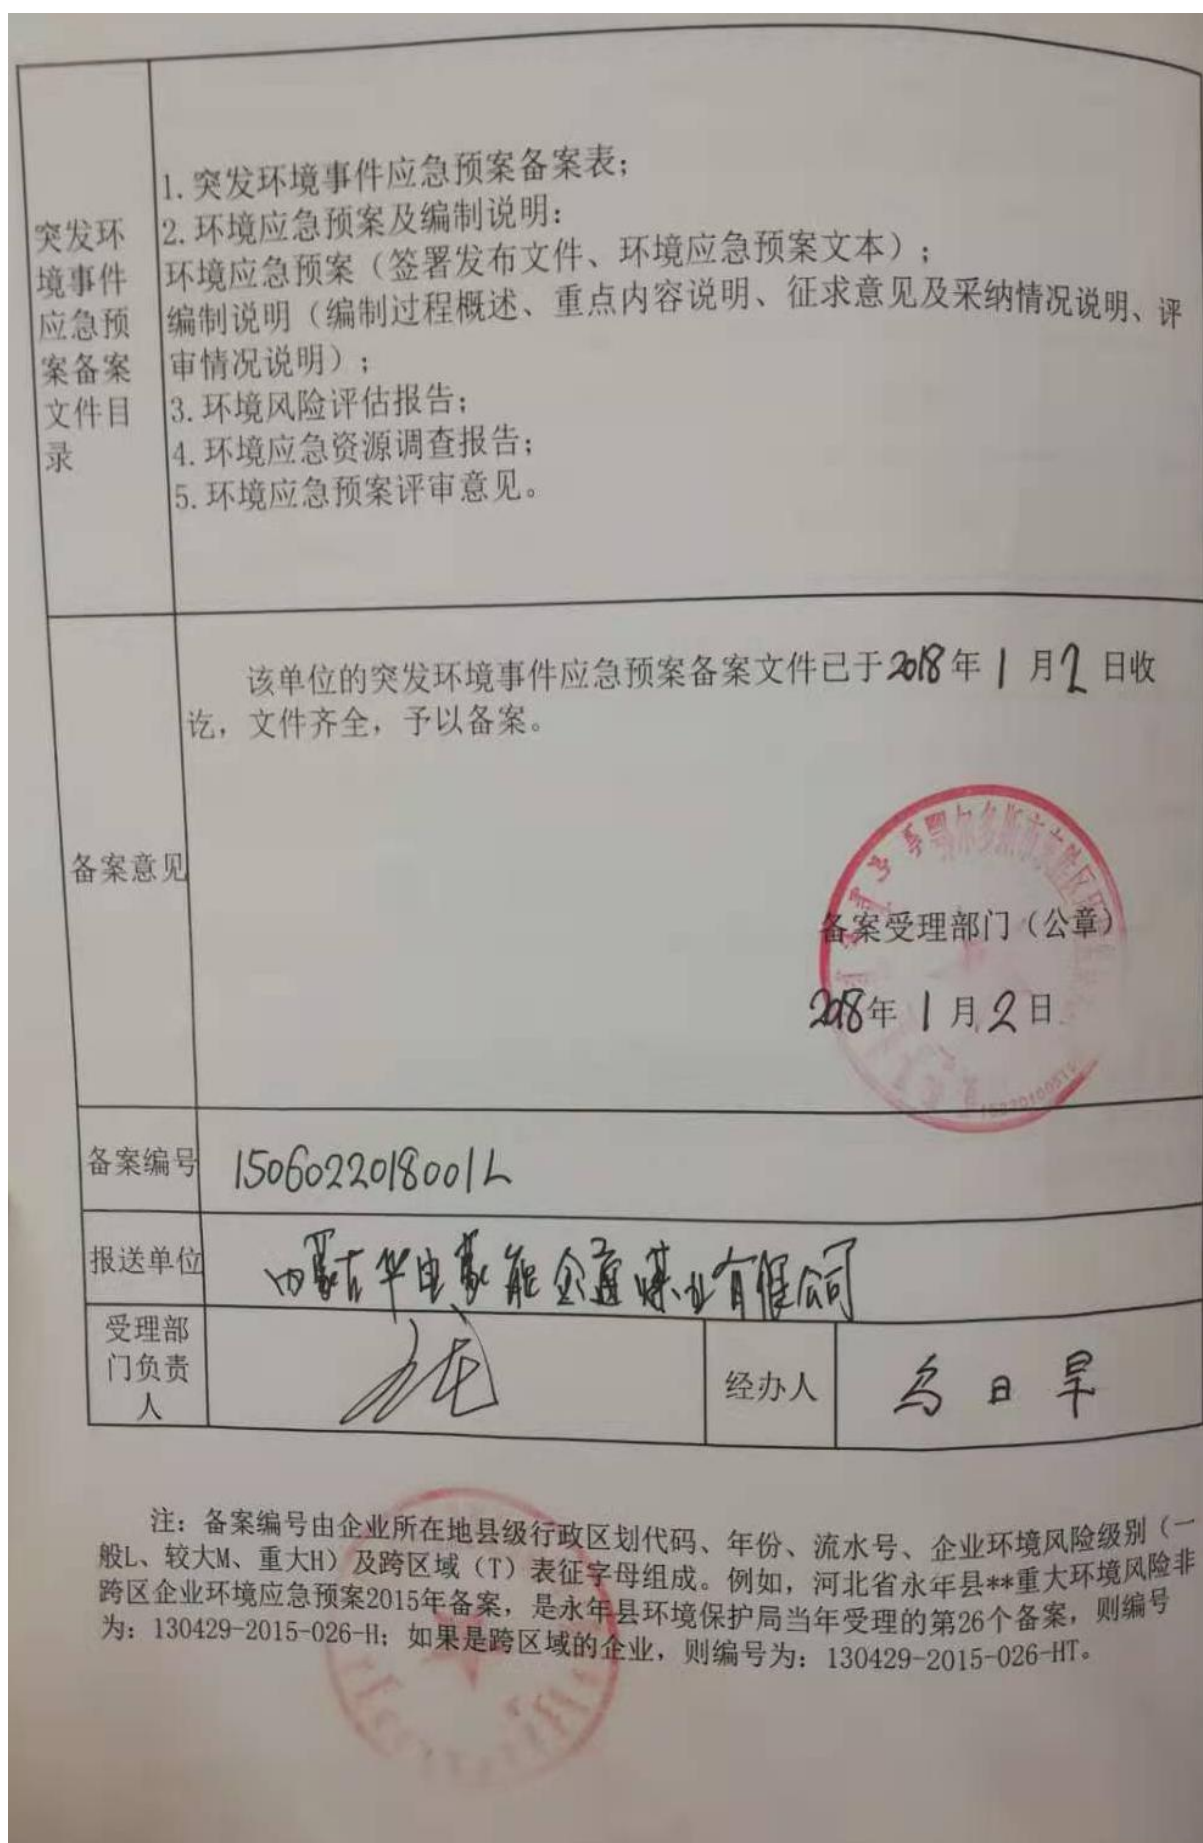 突发环
境事件
应急预
案备案
文件目
录
1.突发环境事件应急预案备案表;
2.环境应急预案及编制说明:
环境应急预案(签署发布文件、环境应急预案文本);
编制说明(编制过程概述、重点内容说明、征求意见及采纳情况说明、评
审情况说明);
3.环境风险评估报告;
4.环境应急资源调查报告;
5.环境应急预案评审意见。
备案意见
该单位的突发环境事件应急预案备案文件已于2018年1月2日收
讫,文件齐全,予以备案。
鄂尔多斯市东胜区环
备案受理部门(公章)
2018年1月2日
备案编号
1506022018001L
报送单位
内蒙古华电蒙能金通煤业有限公司
受理部
门负责
人
经办人
乌日罕
注:备案编号由企业所在地县级行政区划代码、年份、流水号、企业环境风险级别(一
般L、较大M、重大H)及跨区域(T)表征字母组成。例如,河北省永年县**重大环境风险非
跨区企业环境应急预案2015年备案,是永年县环境保护局当年受理的第26个备案,则编号
为:130429-2015-026-H;如果是跨区域的企业,则编号为:130429-2015-026-HT。